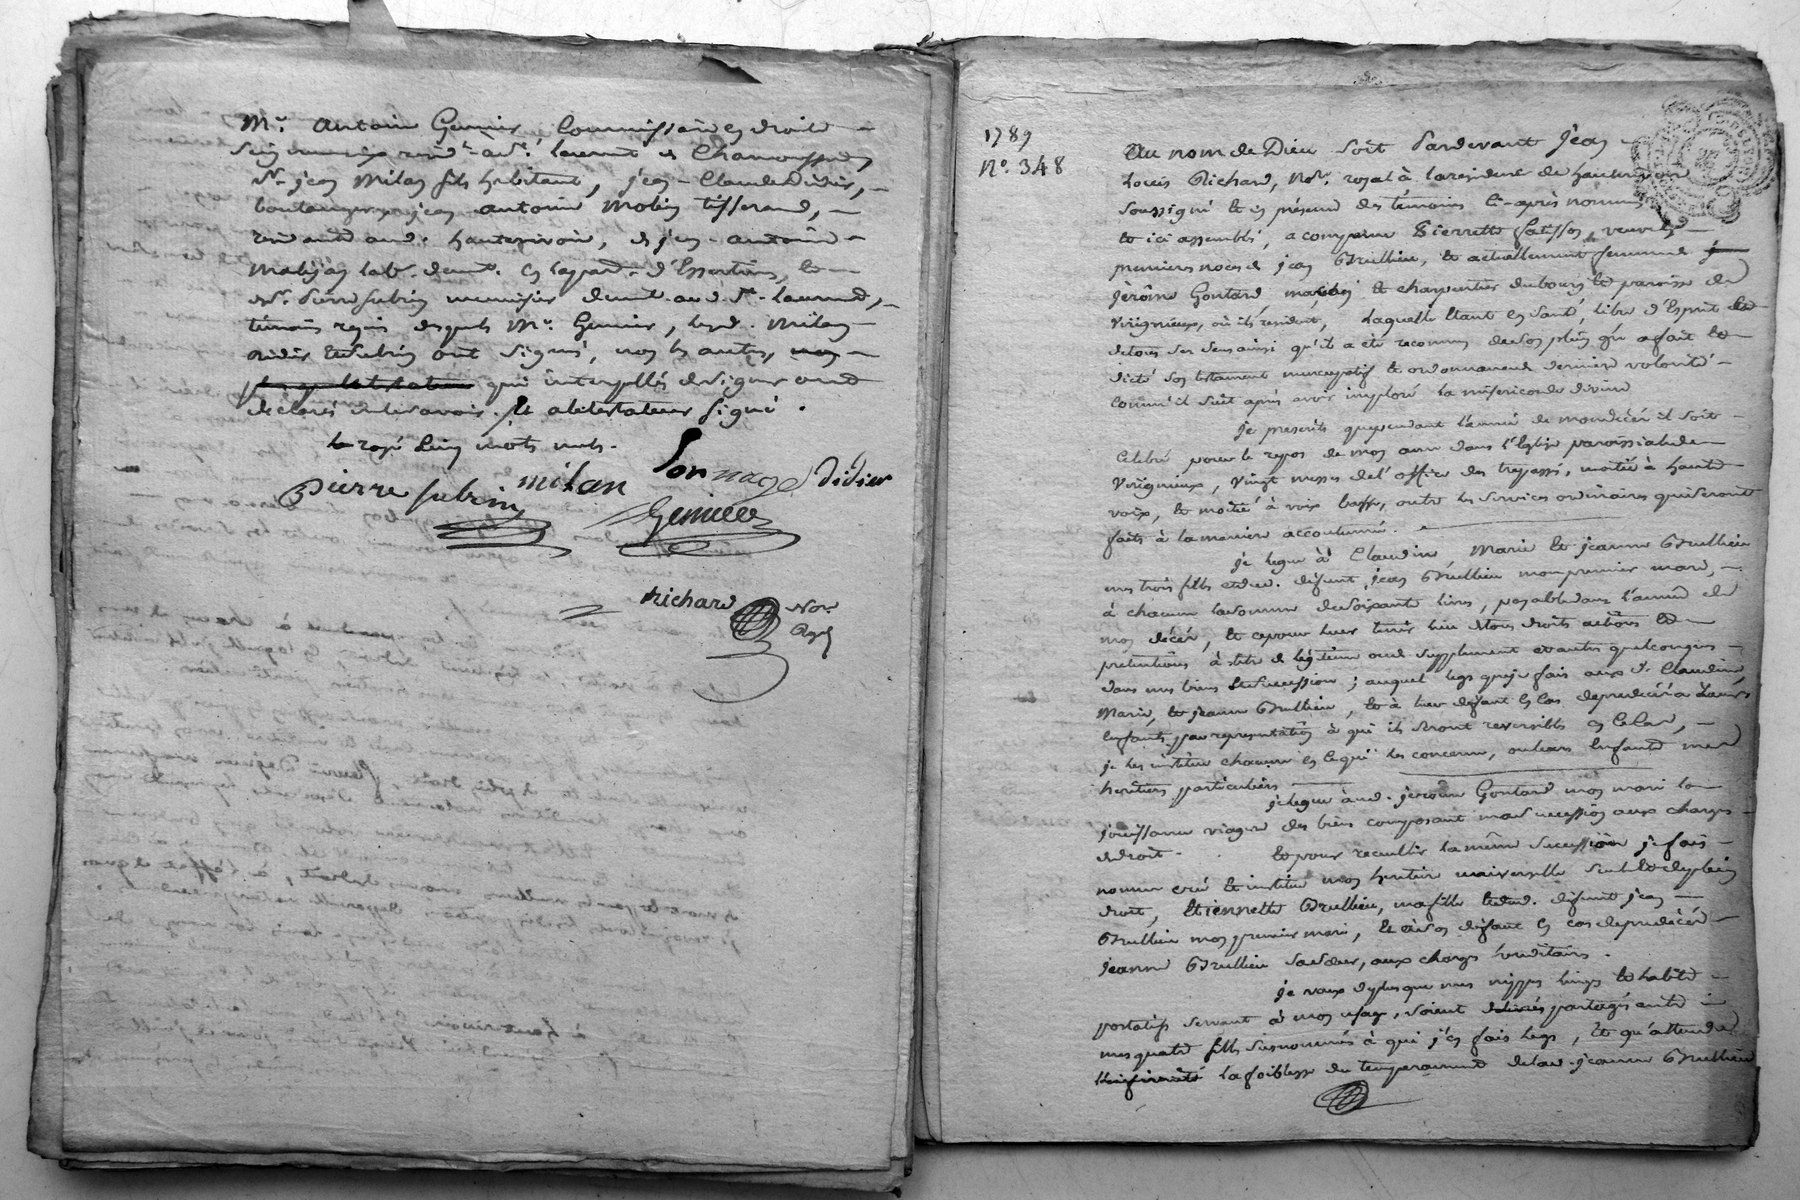 Mr. antoine Genier, Commissaire en droits
seigneuriaux resid.t aud.t laurent de Chamousset,
Sr. jean Milan fils habitant, jean Claude Didier,
boulanger, jean antoine Molin tisserand,
residants aud. hauterivoir, et jean antoine
lab. demt. en d'Essertines, et
Sr. pierre subrin menuisier demt. aud. St. laurent,
témoins requis desquels Mr. Genier, lesd. Milan
Didier et subrin ont signé, non les autres,
qui interpellés de signer ont
declaré ne le savoir. et a le testateur signé.
rayé cinq mots nuls.
pierre subrin milan Tonnage Didier
Genieer
Richard Nore.
Royal
1789
No. 348
Au nom de Dieu soit Pardevant Jean
Louis Richard, Nore. royal à la residence de hauterivoir
soussigné et en présence des témoins ci-après nommés
et ici assemblés, a comparue Pierrette fatisson, veuve en
premieres noces de jean Brullieu, et actuellement femme de
Jérôme Gontard, et charpentier du bourg et paroisse de
Virigneux, où ils résident, laquelle étant en santé, libre d'Esprit et
de tous ses sens ainsi qu'il a été reconnu de son plein gré a fait et
dicté son testament nuncupatif et ordonnance de derniere volonté
comme il suit après avoir imploré la misericorde divine
Je prescrits que pendant l'année de mon décès il soit
celebré, pour le repos de mon ame dans l'Eglise paroissiale de
Virigneux, vingt messes de l'office des trepassés, moitié à haute
voix, et moitié à voix basse, outre les services ordinaires qui seront
faits à la maniere accoutumée.
je legue à Claudine, Marie et jeanne Brullieu
mes trois filles et dud. defunt jean Brullieu mon premier mari,
à chacune la somme de soixante livres, payable dans l'année de
mon décès, et ce pour leur tenir lieu de tous droits actions et
pretentions à titre de légitime ou de supplement et autres quelconques
dans mes biens et succession; auquel legs que je fais aux d. Claudine,
Marie, et jeanne Brullieu, et à leur defaut en cas de predécès à leurs
enfants par representation à qui ils seront reversibles en ce cas,
je les institue chacune en ce qui les concerne, ou leurs enfants mes
heritiers particuliers
je legue aud. jerome Gontard mon mari la
jouissance viagere des biens composant ma succession aux charges
de droit. Et pour recueillir la même succession je fais
nomme crée et institue mon heritiere universelle seule et de plein
droit, Etiennette Brullieu, ma fille et dud. defunt jean
Brullieu mon premier mari, et à son defaut en cas de predécès
jeanne Brullieu sa sœur, aux charges hereditaires.
je veux de plus que mes nippes linges et habits
portatifs servant à mon usage, soient partagés entre
mes quatre filles susnommées à qui j'en fais legs, et qu'attendu
la foiblesse du temperament de lad. jeanne Brullieu